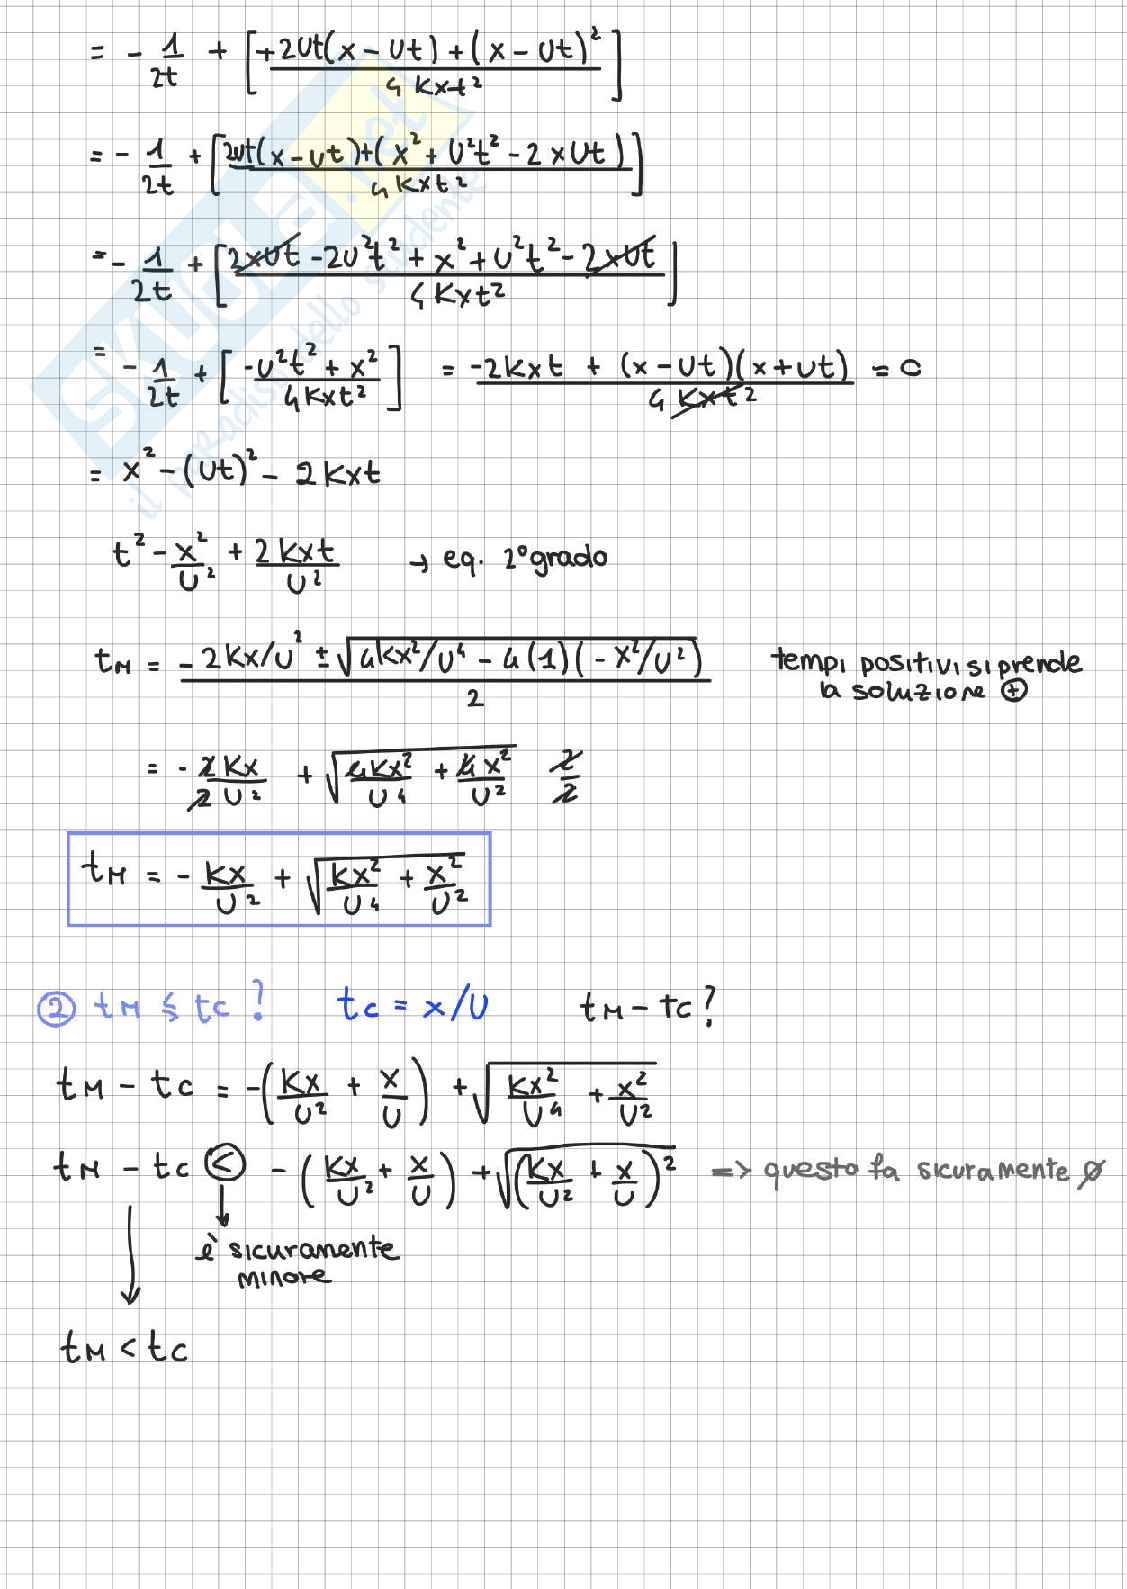 = - 1/2t + [+2Ut(x - Ut) + (x - Ut)²/4Kxt²]
= - 1/2t + [2Ut(x - Ut) + (x² + U²t² - 2xUt)/4Kxt²]
= - 1/2t + [2xUt - 2U²t² + x² + U²t² - 2xUt/4Kxt²]
= - 1/2t + [-U²t² + x²/4Kxt²] = -2Kxt + (x - Ut)(x + Ut)/4Kxt² = 0
= x² - (Ut)² - 2Kxt
t² - x²/U² + 2Kxt/U² → eq. 2° grado
tM = - 2Kx/U² ± √(4Kx²/U⁴ - 4(1)(-x²/U²))/2 tempi positivi si prende
la soluzione ⊕
= - 2Kx/2U² + √(4Kx²/U⁴ + 4x²/U²) 2/2
tM = - Kx/U² + √(Kx²/U⁴ + x²/U²)
② tM ≤ tc ? tc = x/U tM - tc ?
tM - tc = -(Kx/U² + x/U) + √(Kx²/U⁴ + x²/U²)
tM - tc < - (Kx/U² + x/U) + √(Kx/U² + x/U)² => questo fa sicuramente ∅
è sicuramente
minore
tM < tc
SKUOLA.net
il paradiso dello studente